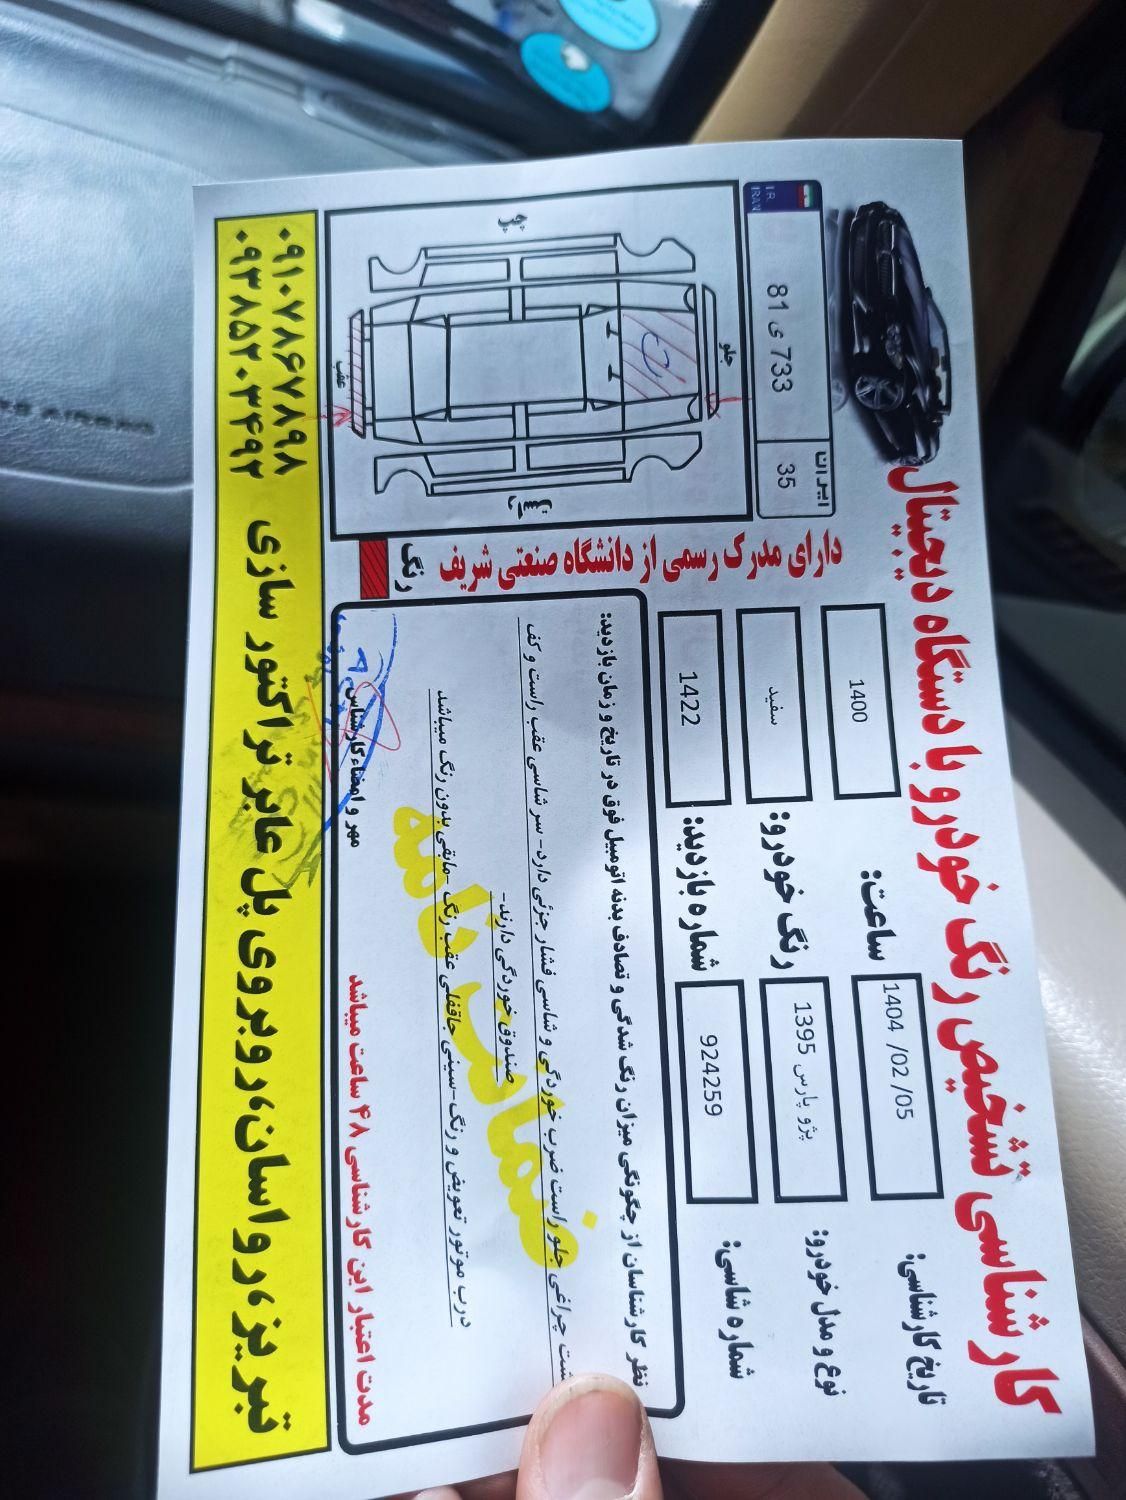 کارشناسی تشخیص رنگ خودرو با دستگاه دیجیتال
تاریخ کارشناسی: 1404 /02/ 05
ساعت: 1400
I.R.
IRAN
81 ی 733
ایران
35
نوع و مدل خودرو: پژو پارس 1395
رنگ خودرو: سفید
شماره شاسی: 924259
شماره بازدید: 1422
دارای مدرک رسمی از دانشگاه صنعتی شریف
رنگ
جلو
چپ
راست
عقب
ت
نظر کارشناسان از چگونگی میزان رنگ شدگی و تصادف بدنه اتومبیل فوق در تاریخ و زمان بازدید:
شت چراغی جلو راست ضرب خوردگی و شاسی فشار جزئی دارد- سر شاسی عقب راست و کف
صندوق خوردگی دارند-
درب موتور تعویض و رنگ-سینی جاقفلی عقب رنگ -مابقی بدون رنگ میباشد
ضمانت نامه
مهر و امضاء کارشناس
مدت اعتبار این کارشناسی ۴۸ ساعت میباشد
تبریز، رواسان، روبروی پل عابر تراکتور سازی
۰۹۱۰۷۸۶۷۸۹۸
۰۹۳۸۵۲۰۳۴۹۲
AIRBAG